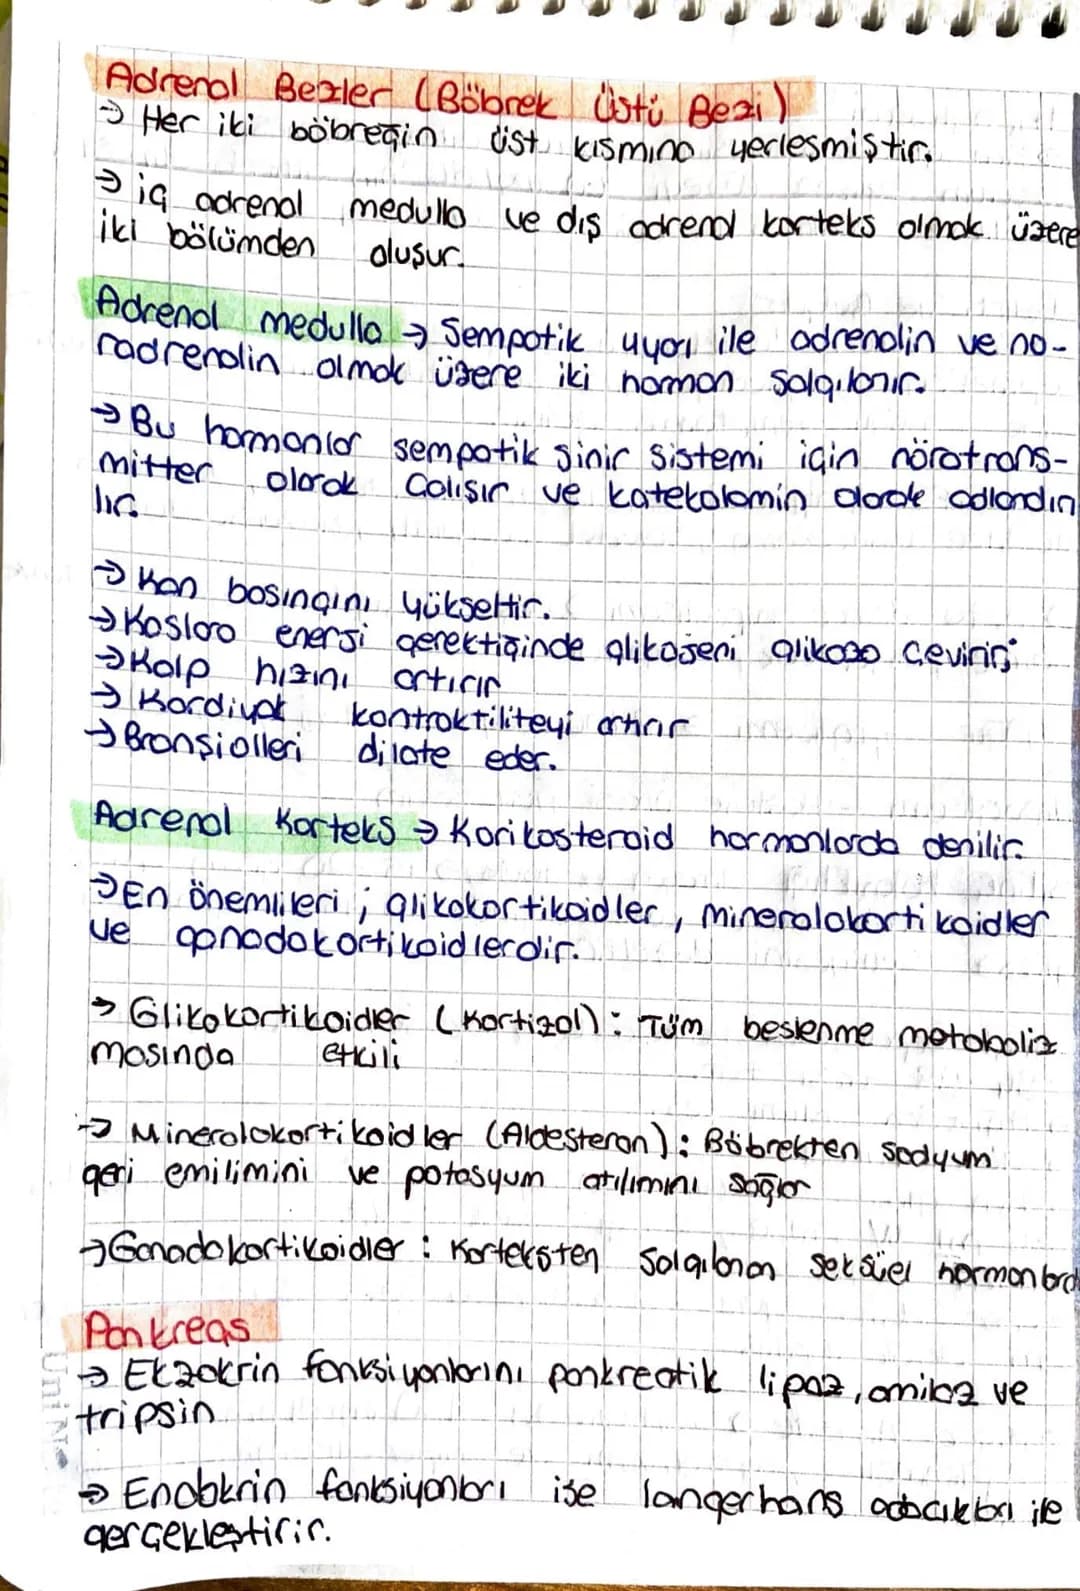 Adrenal Bezler (Böbrek Üstü Bezi)
→ Her iki böbreğin üst kısmına yerleşmiştir.
→ iç adrenal medulla ve dış adrenal korteks olmak üzere
iki bölümden oluşur.
Adrenal medulla → Sempatik uyarı ile adrenalin ve no-
radrenalin olmak üzere iki hormon salgılanır.
→ Bu hormonlar sempatik sinir sistemi için nörotrans-
mitter olarak Çalışır ve katekolamin olarak adlandırı
lır.
→ Kan basıncını yükseltir.
→ Kaslara enerji gerektiğinde glikojeni glikoza çevirir;
→ Kalp hızını artırır
→ Kardiyak kontraktiliteyi artırır
→ Bronşiolleri dilate eder.
Adrenal Korteks → Korikosteroid hormonlarda denilir.
→ En önemlileri ; glikokortikoidler , mineralokortikoidler
ve gonadokortikoidlerdir.
→ Glikokortikoidler (Kortizol) : Tüm beslenme metaboliz
masında etkili
→ Mineralokortikoidler (Aldesteron) : Böbrekten sodyum
geri emilimini ve potasyum atılımını sağlar
→ Gonadokortikoidler : Korteksten Salgılanan seksüel hormonlard
Pankreas
→ Ekzokrin fonksiyonlarını pankreatik lipaz, amilaz ve
tripsin
→ Endokrin fonksiyonları ise langerhans adacıkları ile
gerçekleştirir.
UniN